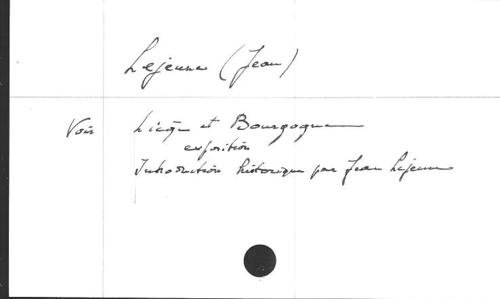 Lejeune (Jean)
Voir Liège et Bourgogne
exposition
Introduction historique par Jean Lejeune